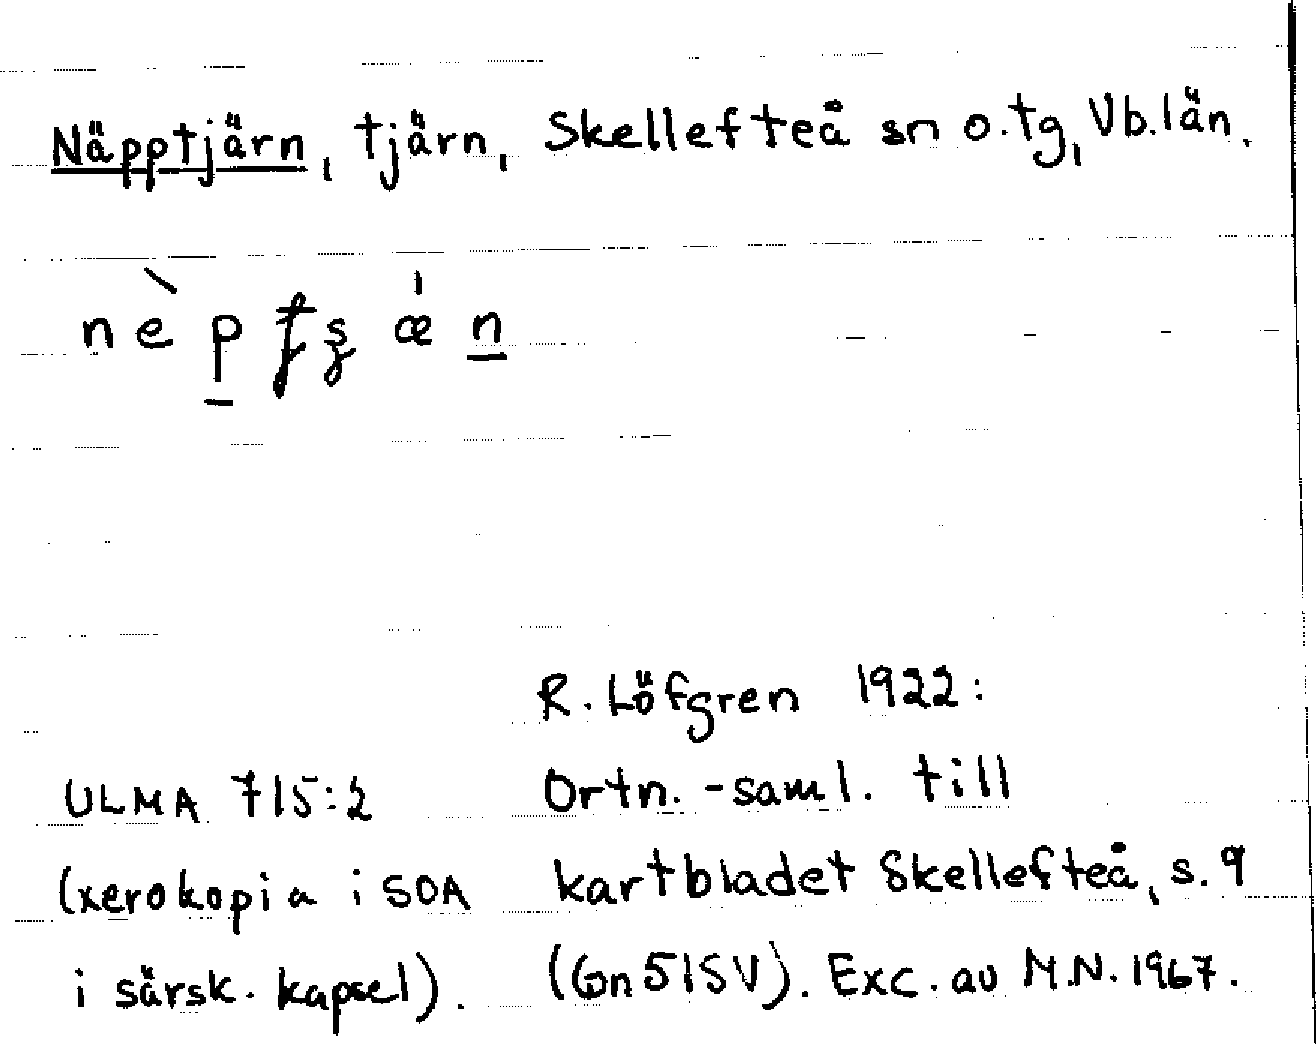 Näpptjärn, tjärn, Skellefteå sn o.tg, Vb.län.
R. Löfgren 1922:
ULMA 715:2 Ortn.-saml. till
(xerokopia i SOA kartbladet Skellefteå, s.9
i särsk. kapsel). (Gn51SV). Exc. av M.N. 1967.